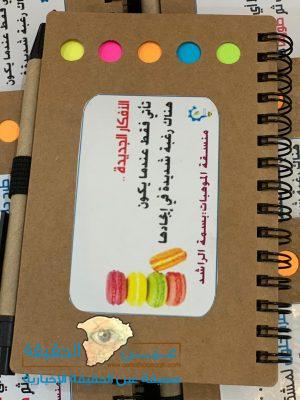 الأفكار الجديدة ..
تأتي فقط عندما يكون
هناك رغبة شديدة في إيجادها
منسقة الموهبات : بسمة الراشد
عين الحقيقة
صحيفة عين الحقيقة الإخبارية